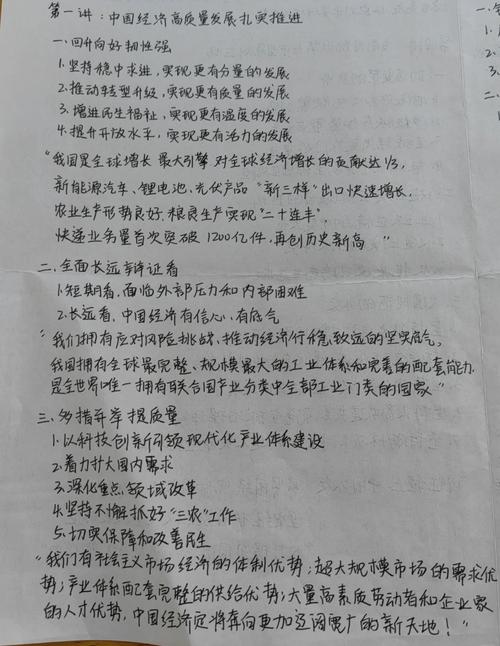 第一讲：中国经济高质量发展扎实推进
一.回升向好韧性强
1.坚持稳中求进，实现更有分量的发展
2.推动转型升级，实现更有质量的发展
3.增进民生福祉，实现更有温度的发展
4.提升开放水平，实现更有活力的发展
“我国是全球增长最大引擎 对全球经济增长的贡献达1/3，
新能源汽车、锂电池、光伏产品“新三样”出口快速增长，
农业生产形势良好.粮食生产实现“二十连丰”
快递业务量首次突破1200亿件，再创历史新高”
二.全面长远辩证看
1.短期看，面临外部压力和内部困难
2.长远看，中国经济有信心，有底气
“我们拥有应对风险挑战、推动经济行稳致远的坚实底气，
我国拥有全球最完整、规模最大的工业体系和完善的配套能力，
是全世界唯一拥有联合国产业分类中全部工业门类的国家”
三.多措并举提质量
1.以科技创新引领现代化产业体系建设
2.着力扩大国内需求
3.深化重点领域改革
4.坚持不懈抓好“三农”工作
5.切实保障和改善民生
“我们有社会主义市场经济的体制优势；超大规模市场的需求优
势；产业体系配套完整的供给优势；大量高素质劳动者和企业家
的人才优势，中国经济定将奔向更加辽阔宽广的新天地！”